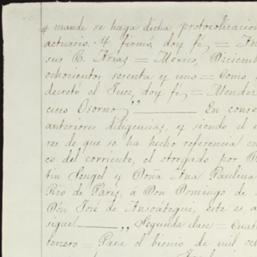 y mande se haga dicha protocolizacion
actuario. Y firmó, doy fé =
sus C. Arias = Mexico, Diciembre
ochocientos sesenta y uno = Como
decretó el Juez, doy fé = Mendez
cisco Osorno „
anteriores diligencias, y siendo el
res de que se ha hecho referencia
es del corriente, el otorgado por D
tin Angel y Doña Ana Paulina
Rico de Pares, a Don Domingo de
Don José de Ansoategui, este es a
sigue „ Segunda clase = Cuat
tercero = Para el bienio de mil och